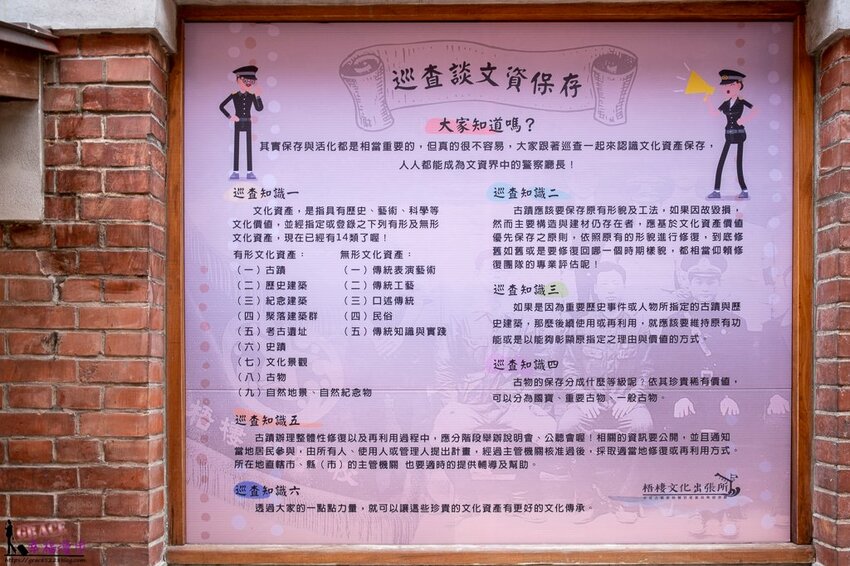 巡查談文資保存
大家知道嗎？
其實保存與活化都是相當重要的，但真的很不容易，大家跟著巡查一起來認識文化資產保存，
人人都能成為文資界中的警察廳長！
巡查知識一
文化資產，是指具有歷史、藝術、科學等
文化價值，並經指定或登錄之下列有形及無形
文化資產，現在已經有14類了喔！
有形文化資產：
（一）古蹟
（二）歷史建築
（三）紀念建築
（四）聚落建築群
（五）考古遺址
（六）史蹟
（七）文化景觀
（八）古物
（九）自然地景、自然紀念物
無形文化資產：
（一）傳統表演藝術
（二）傳統工藝
（三）口述傳統
（四）民俗
（五）傳統知識與實踐
巡查知識二
古蹟應該要保存原有形貌及工法，如果因故毀損，
然而主要構造與建材仍存在者，應基於文化資產價值
優先保存之原則，依照原有的形貌進行修復，到底修
舊如舊或是要修復回哪一個時期樣貌，都相當仰賴修
復團隊的專業評估呢！
巡查知識三
如果是因為重要歷史事件或人物所指定的古蹟與歷
史建築，那麼後續使用或再利用，就應該要維持原有功
能或是以能夠彰顯原指定之理由與價值的方式。
巡查知識四
古物的保存分成什麼等級呢？依其珍貴稀有價值，
可以分為國寶、重要古物、一般古物。
巡查知識五
古蹟辦理整體性修復以及再利用過程中，應分階段舉辦說明會、公聽會喔！相關的資訊要公開，並且通知
當地居民參與，由所有人、使用人或管理人提出計畫，經過主管機關核准過後，採取適當地修復或再利用方式。
所在地直轄市、縣（市）的主管機關 也要適時的提供輔導及幫助。
巡查知識六
透過大家的一點點力量，就可以讓這些珍貴的文化資產有更好的文化傳承。
梧棲文化出張所